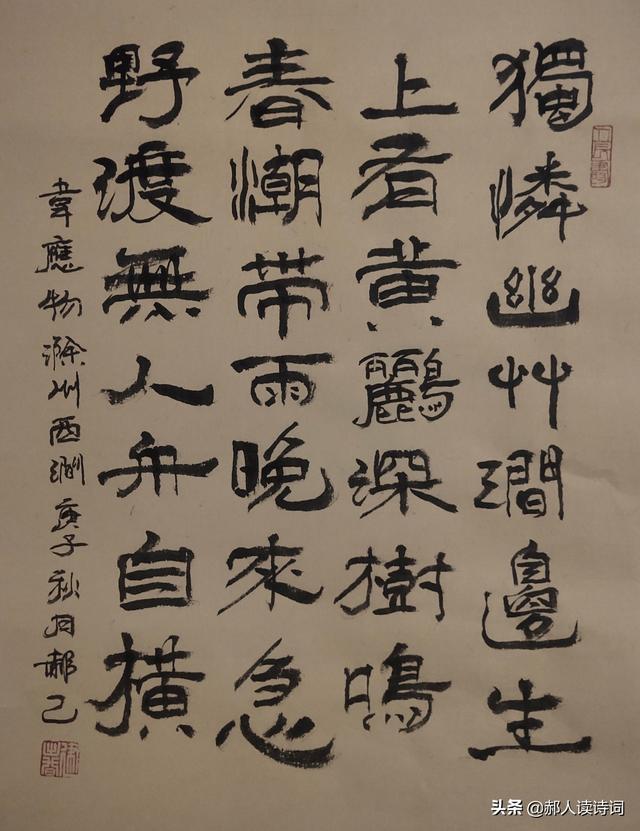 獨憐幽艸澗邊生
上有黃鸝深樹鳴
春潮帶雨晚來急
野渡無人舟自橫
韋應物滁州西澗庚子秋月郝己
头条 @郝人读诗词